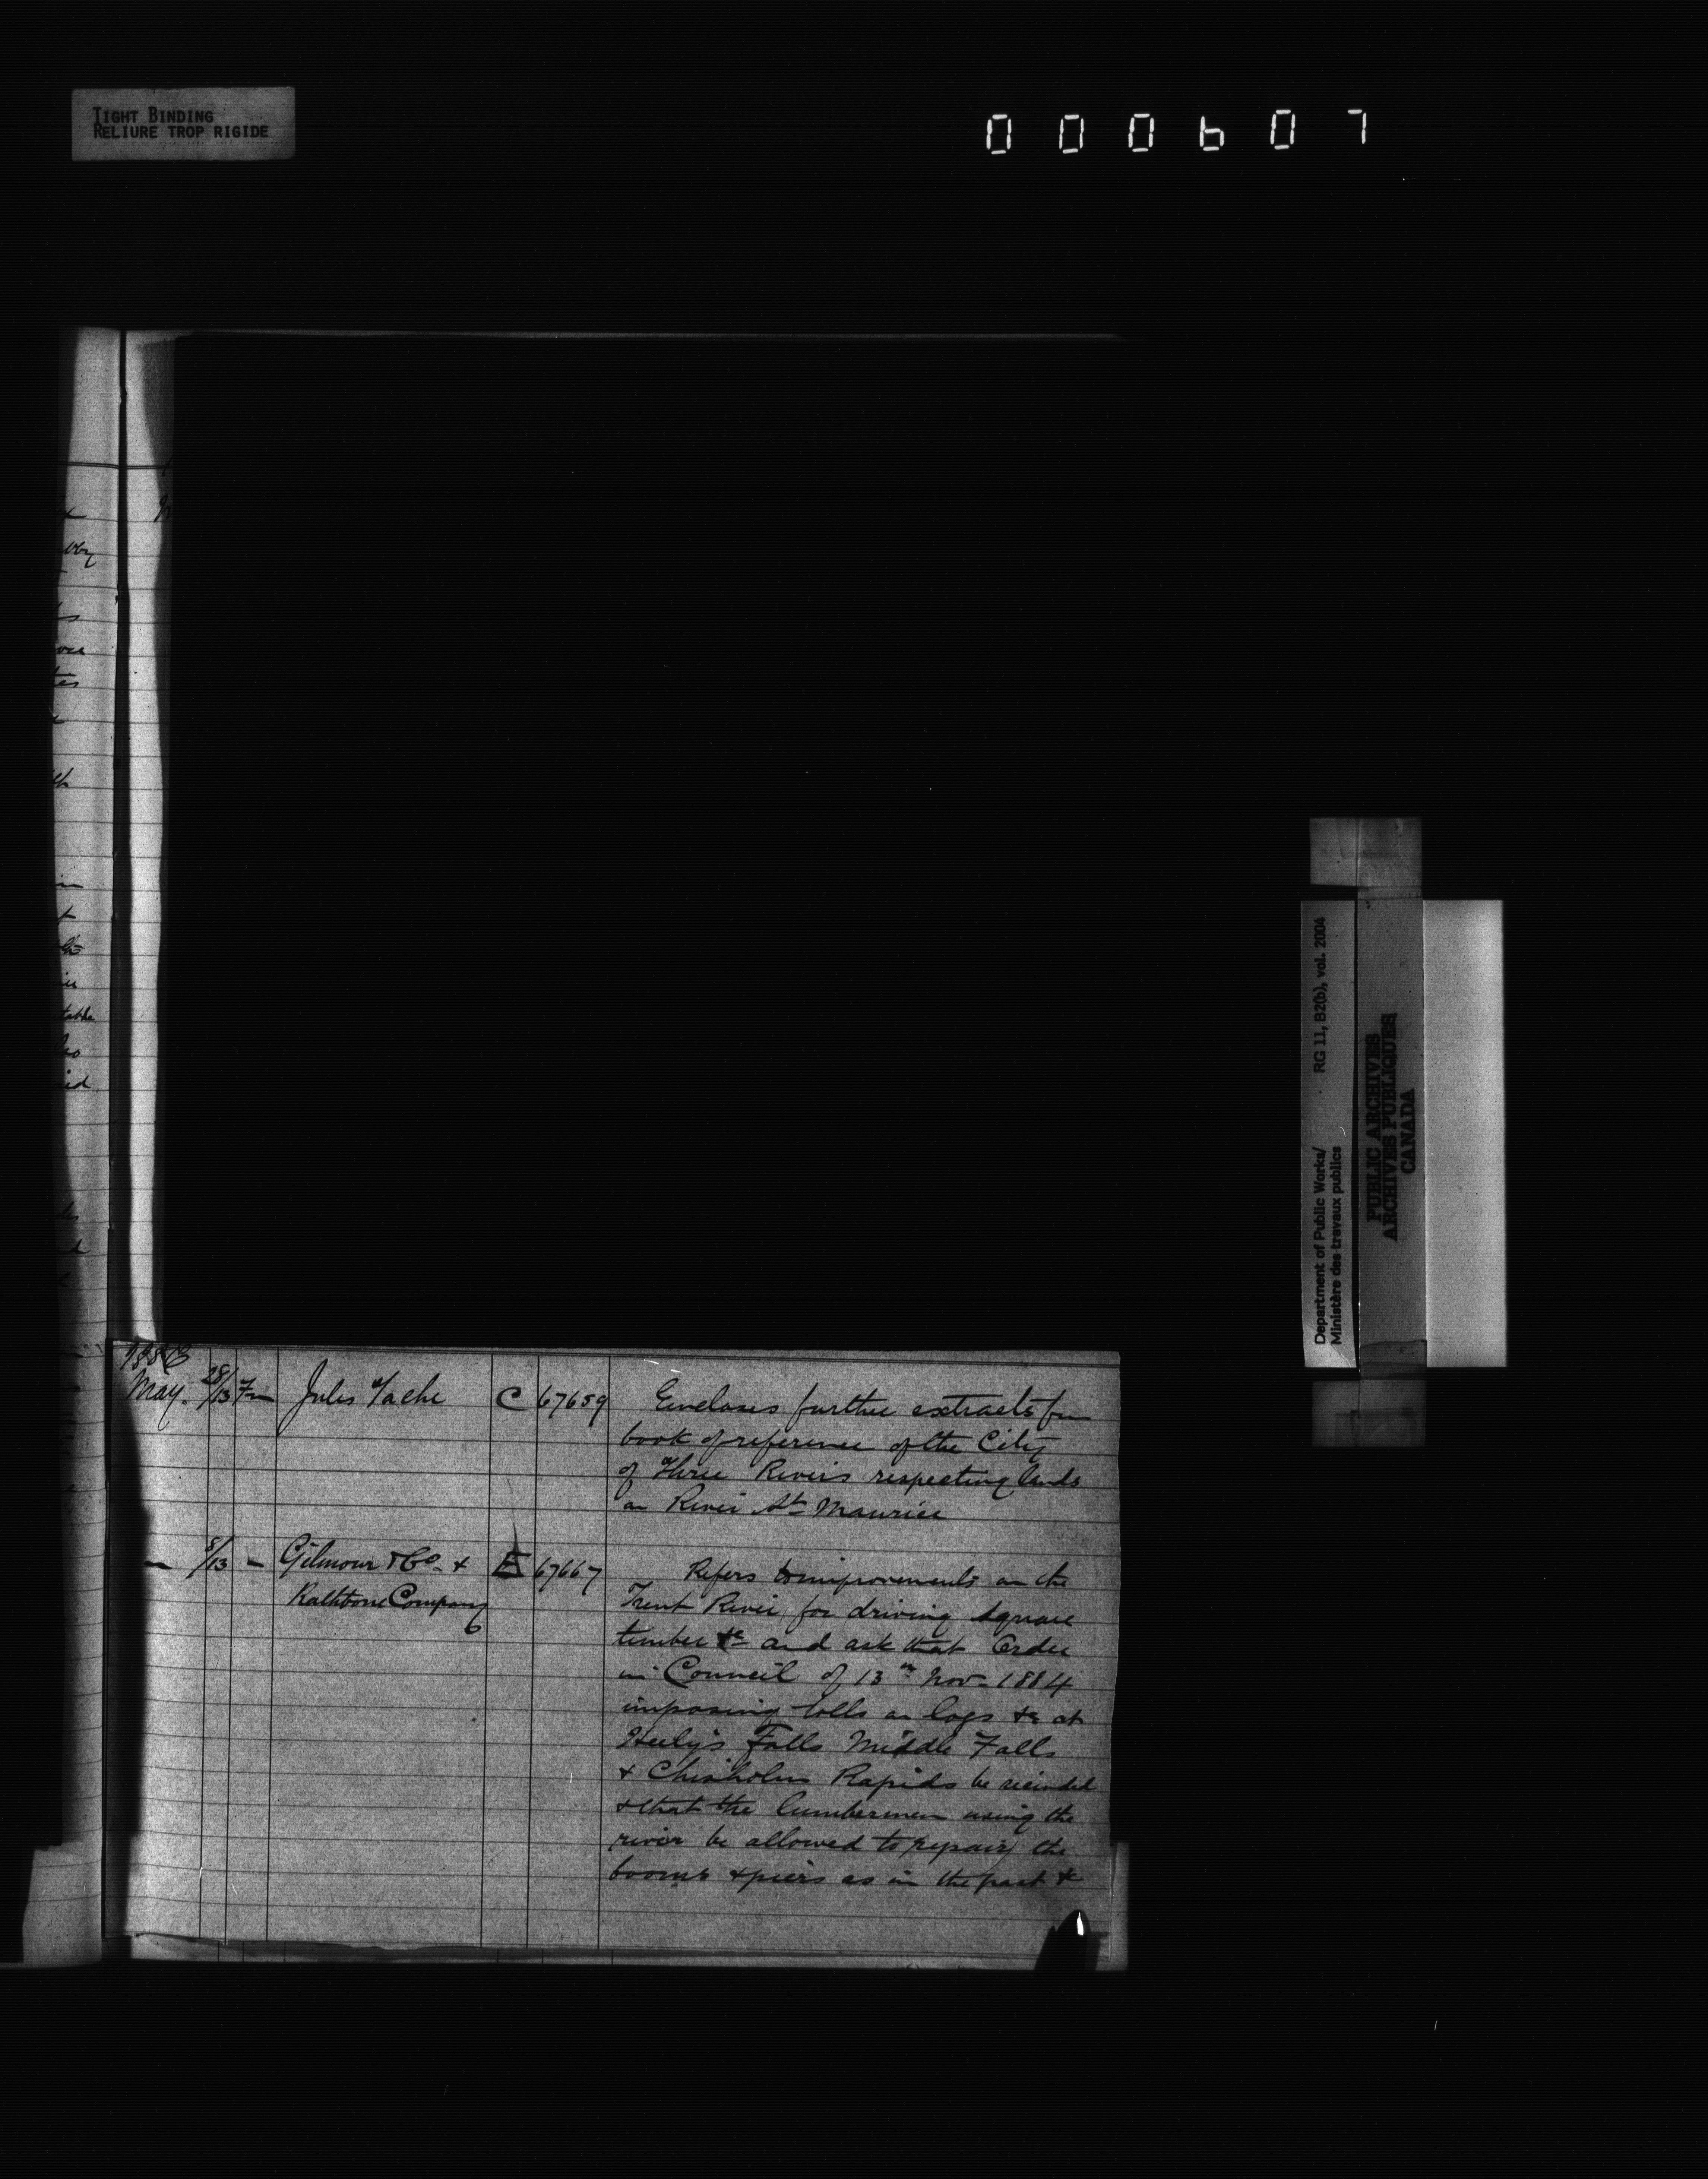 TIGHT BINDING
RELIURE TROP RIGIDE
000607
Department of Public Works/
Ministère des travaux publics
RG 11, B2(b), vol. 2004
PUBLIC ARCHIVES
ARCHIVES PUBLIQUES
CANADA
May. 28/13 Fm Jules Vache C 67659 Encloses further extracts fm
book of reference of the City
of Three Rivers respecting lands
on River St Maurice
— 8/13 — Gilmour & Co. & E 67667 Refers to improvements on the
Rathbone Company Trent River for driving square
6 timber &c and ask that Order
in Council of 13th Nov. 1884
imposing tolls on logs &c at
Heely's Falls Middle Falls
& Chisholms Rapids be recinded
& that the lumbermen using the
river be allowed to repair the
booms & piers as in the past &c